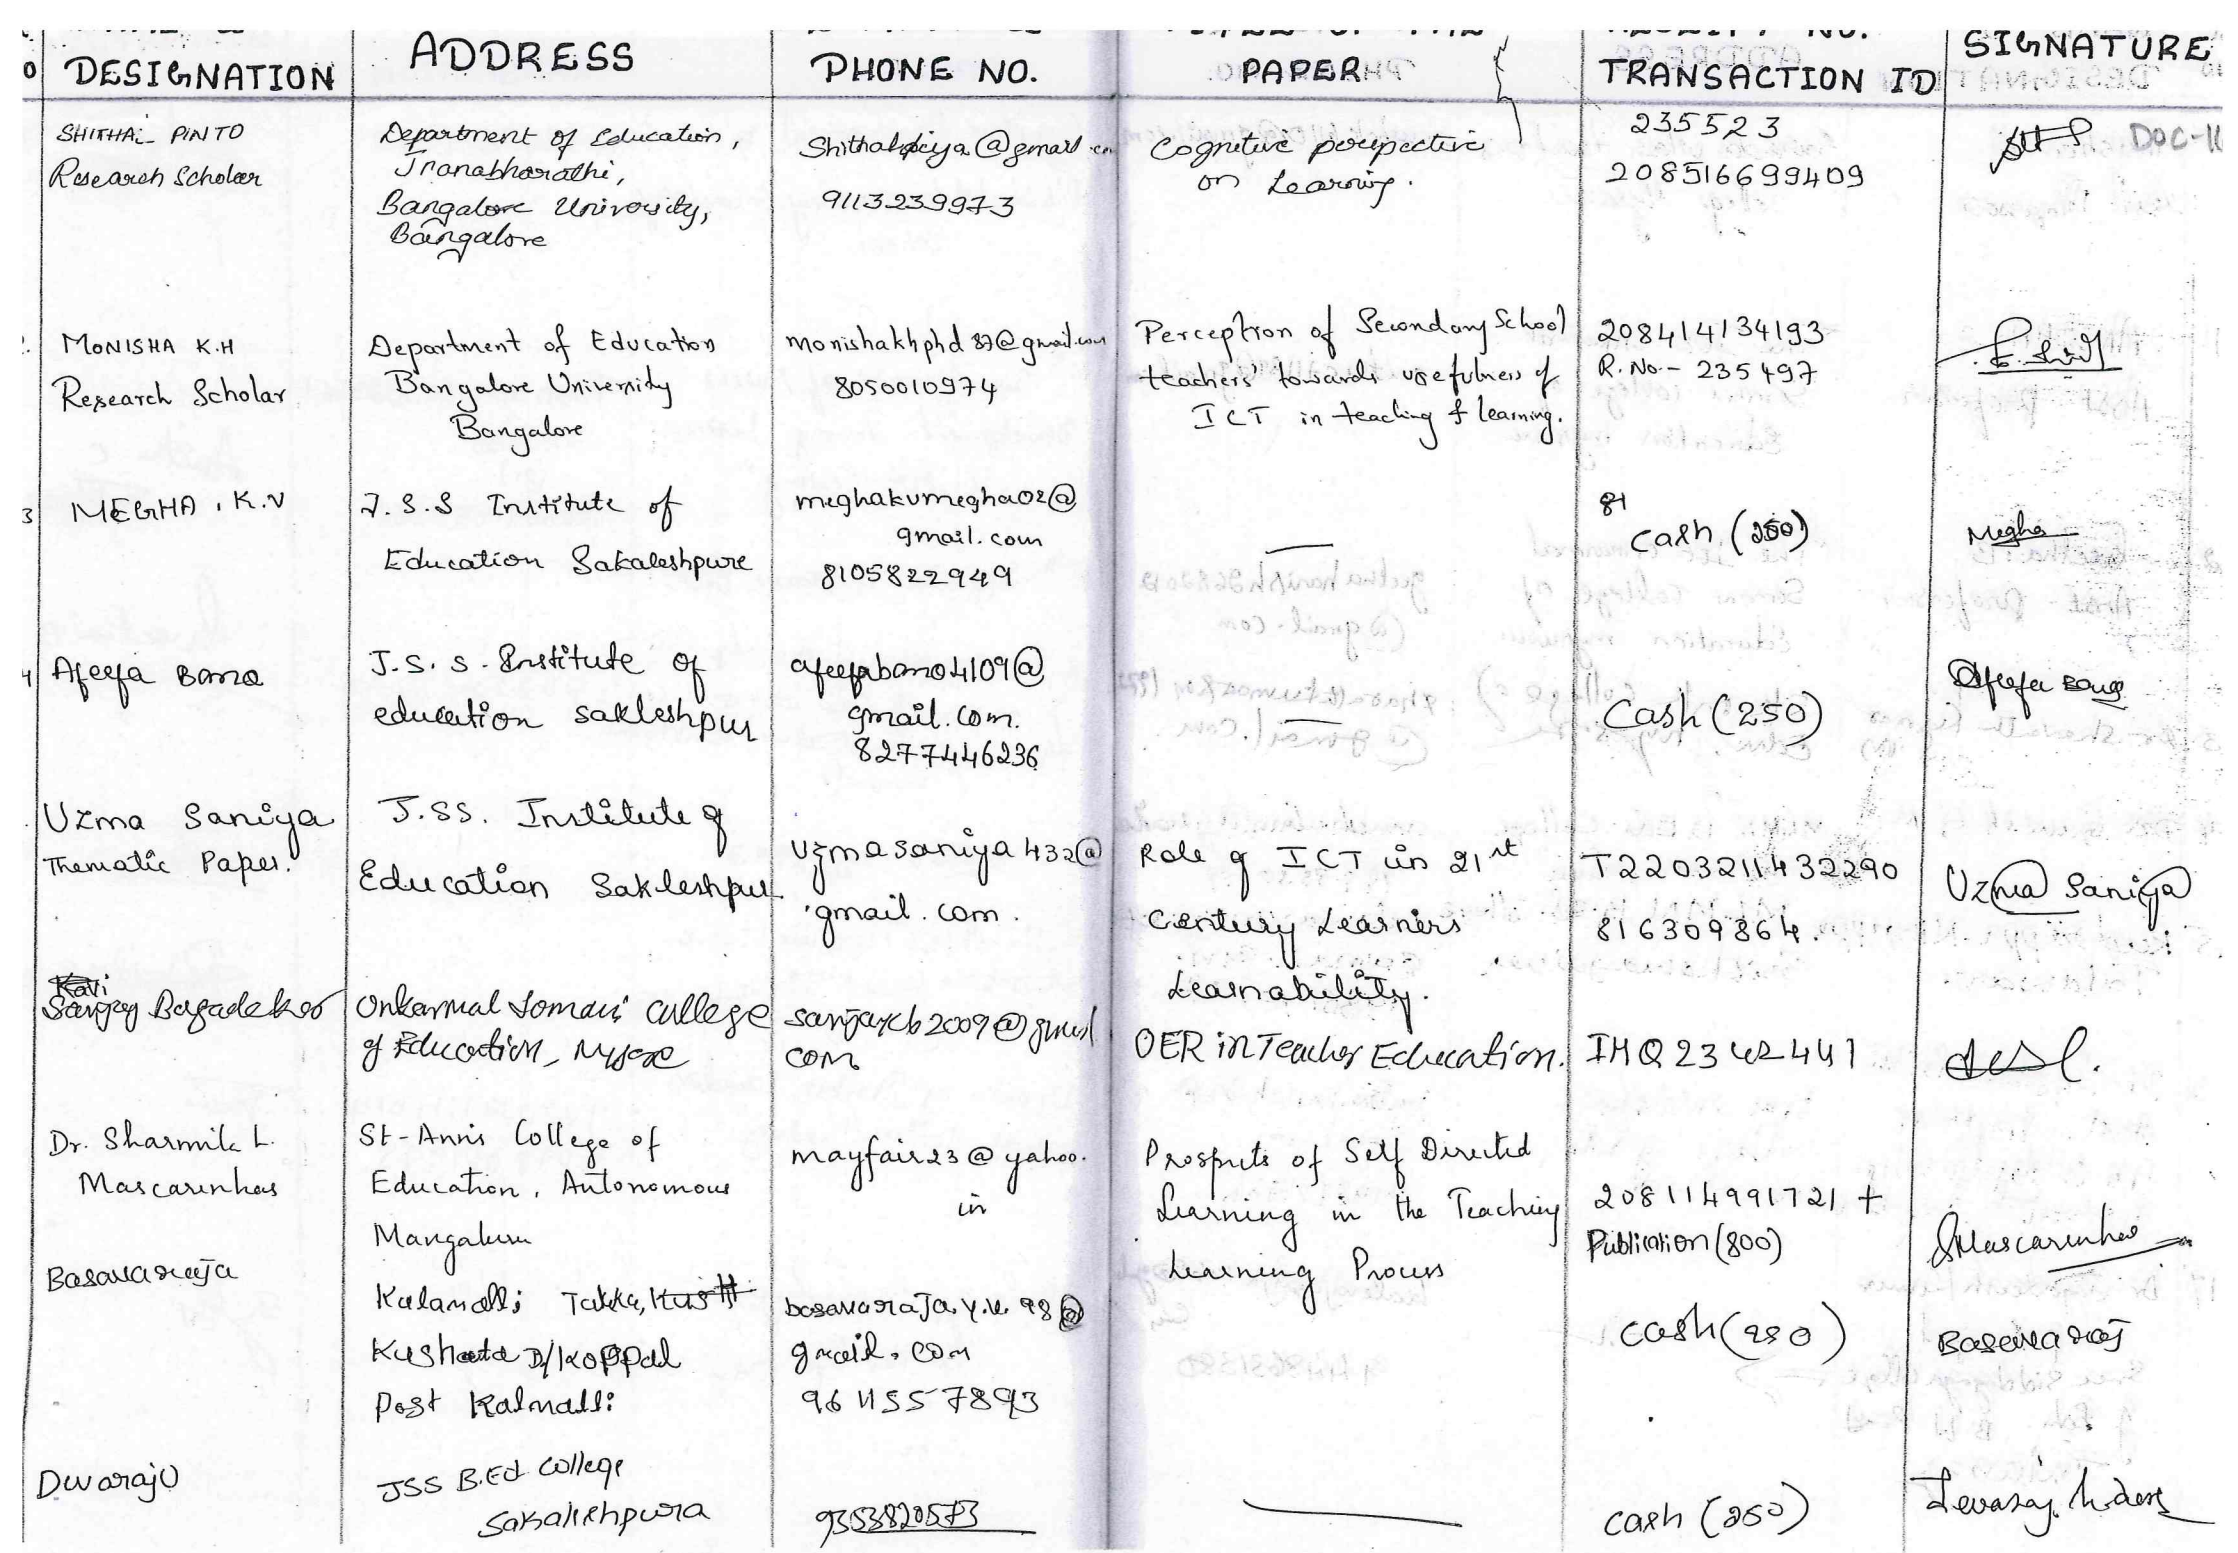 DESIGNATION
ADDRESS
PHONE NO.
PAPER
TRANSACTION ID
SIGNATURE
DOC-11
SHITHAL PINTO
Research Scholar
Department of Education,
Jnanabharathi,
Bangalore University,
Bangalore
9113239973
Cognitive perspective
on Learning.
235523
208516699409
2.
MONISHA K.H
Research Scholar
Department of Education
Bangalore University
Bangalore
monishakhphd87@gmail.com
8050010974
Perception of Secondary School
teachers' towards usefulness of
ICT in teaching & learning.
208414134193
R.No- 235497
3
MEGHA . K.V
J.S.S Institute of
Education Sakaleshpure
meghakvmegha02@
gmail.com
8105822949
—
81
Cash (250)
Megha
4
Afeefa Bano
J.S.S. Institute of
education sakleshpur
afeefabano4109@
gmail.com.
8277446236
—
Cash (250)
Afeefa Bano
Uzma Saniya
Thematic Paper.
J.SS. Institute of
Education Sakleshpur
uzmasaniya432@
gmail.com.
Role of ICT in 21st
Century Learners
Learnability.
T2203211432290
816309864.
Uzma Saniya
Onkarmal Somani College
of Education, Mysore
com
OER in Teacher Education.
IHQ2342441
Dr. Sharmila L.
Mascarenhas
St-Ann's College of
Education, Autonomous
Mangaluru
mayfair23@yahoo.
in
Prospects of Self Directed
Learning in the Teaching
Learning Process
208114991721 +
Publication (800)
SMascarenhas
Basavaraja
D/Koppal
Post Kalmalli
basavaraja.y.k.98@
gmail.com
9611557893
Cash (250)
Basavaraj
Dwaraju
JSS B.Ed College
Sakaleshpura
9353820573
—
Cash (250)